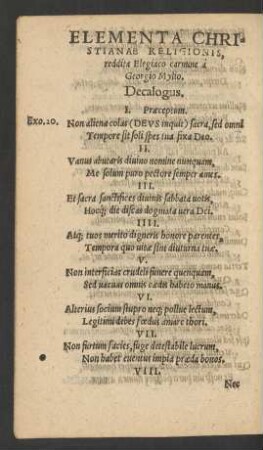 ELEMENTA CHRI-
STIANAE RELIGIONIS,
reddita Elegiaco carmine à
Georgio Mylio.
Decalogus.
I. Præceptum.
Exo. 20.
Non aliena colas (DEVS inquit) sacra, sed omni
Tempore sit soli spes tua fixa Deo.
II.
Vanus abutaris diuino nomine nunquam,
Me solum puro pectore semper ames.
III.
Et sacra sanctifices diuinis sabbata uotis,
Hocq; die discas dogmata uera Dei.
IIII.
Atq; tuos merito digneris honore parentes,
Tempora quo uitæ sint diuturna tuæ.
V.
Non interficias crudeli funere quenquam,
Sed uacuas omnis cædis habeto manus.
VI.
Alterius socium stupro neq; pollue lectum,
Legitimi debes fœdus amare thori.
VII.
Non furtum facies, fuge detestabile lucrum,
Non habet euentus impia præda bonos.
VIII.
Nec